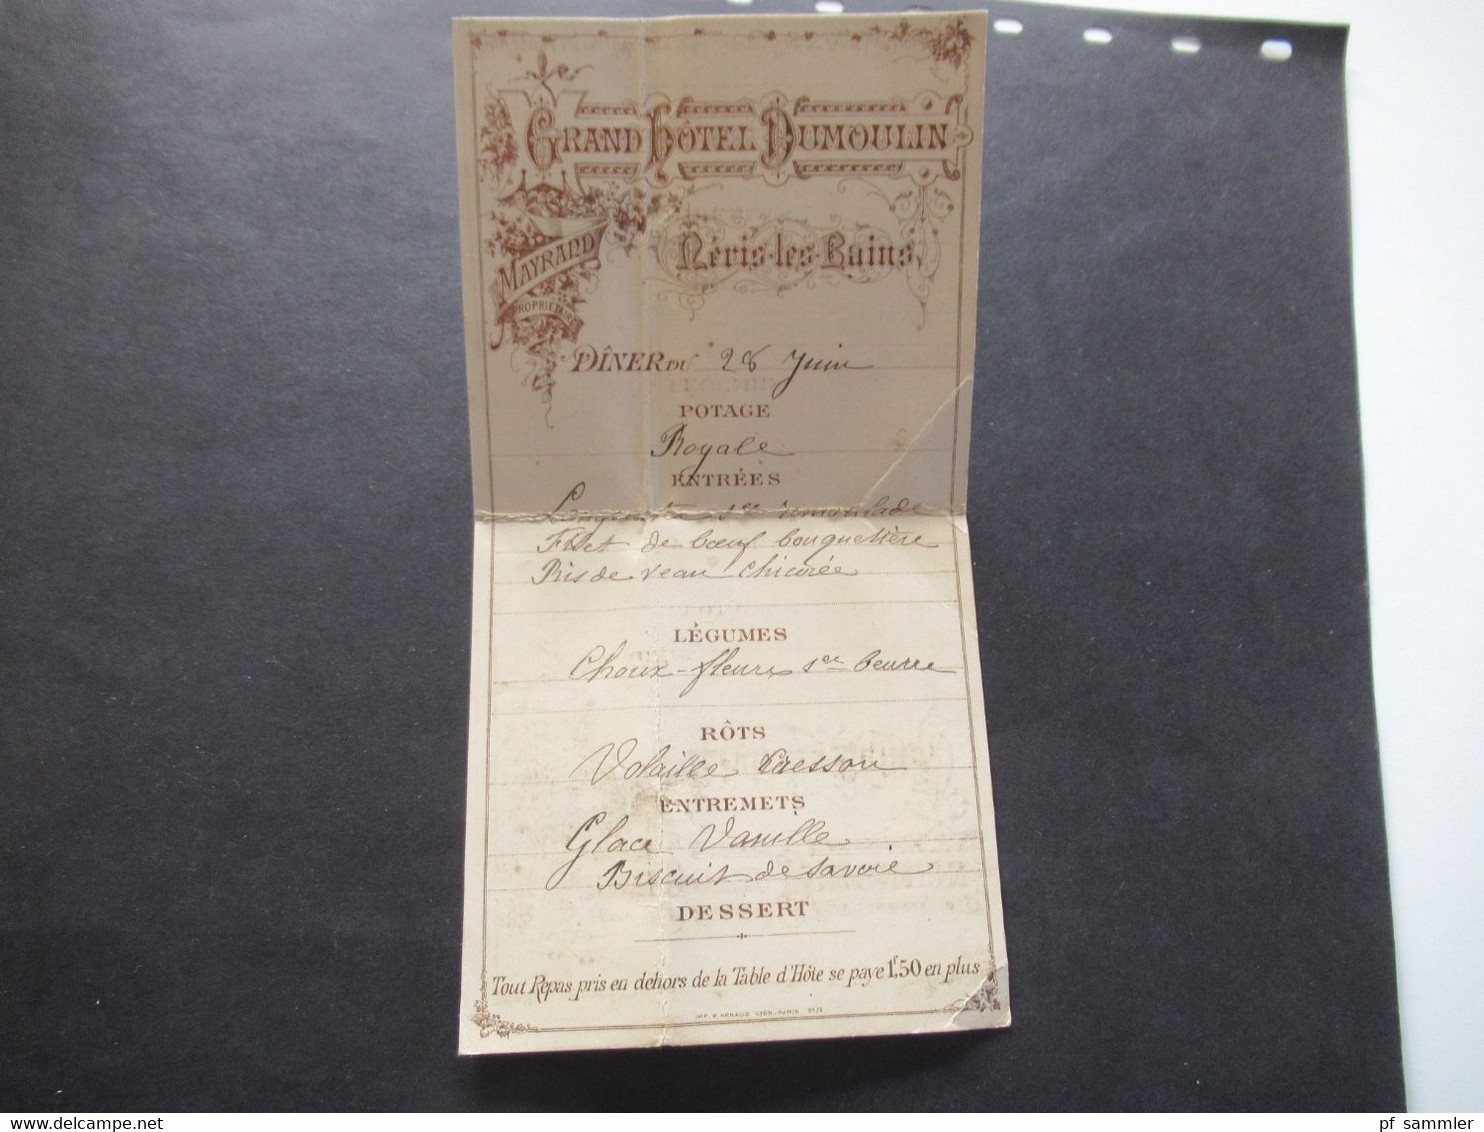 GRAND HÔTEL DUMOULIN
MAYRAND
PROPRIÉTAIRE
Néris-les-Bains
DÎNER DU 28 Juin
POTAGE
Royale
ENTRÉES
Langouste sce rémoulade
Filet de bœuf bouquetière
Ris de veau chicorée
LÉGUMES
Choux-fleurs sce beurre
RÔTS
Volaille Cresson
ENTREMETS
Glace Vanille
Biscuit de Savoie
DESSERT
Tout Repas pris en dehors de la Table d'Hôte se paye 1f,50 en plus
IMP. P. ARNAUD LYON-PARIS
pf sammler
www.delcampe.net